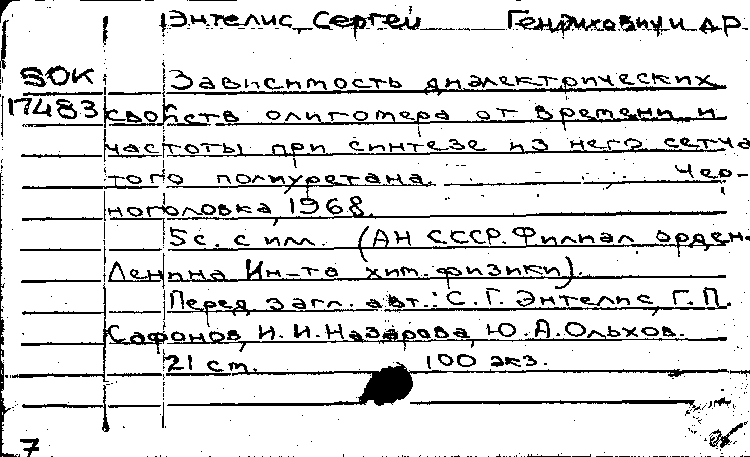 Энтелис, Сергей Генрихович и др.
80К Зависимость диэлектрических
17483 свойств олигомера от времени и
частоты при синтезе из него сетча
того полиуретана. Чер-
ноголовка, 1968.
5с. с илл. (АН СССР. Филиал орден.
Ленина Ин-та хим. физики).
Перед загл. авт.: С. Г. Энтелис, Г. П.
Сафонов, И. И. Назарова, Ю. А. Ольхов.
21 см. 100 экз.
7